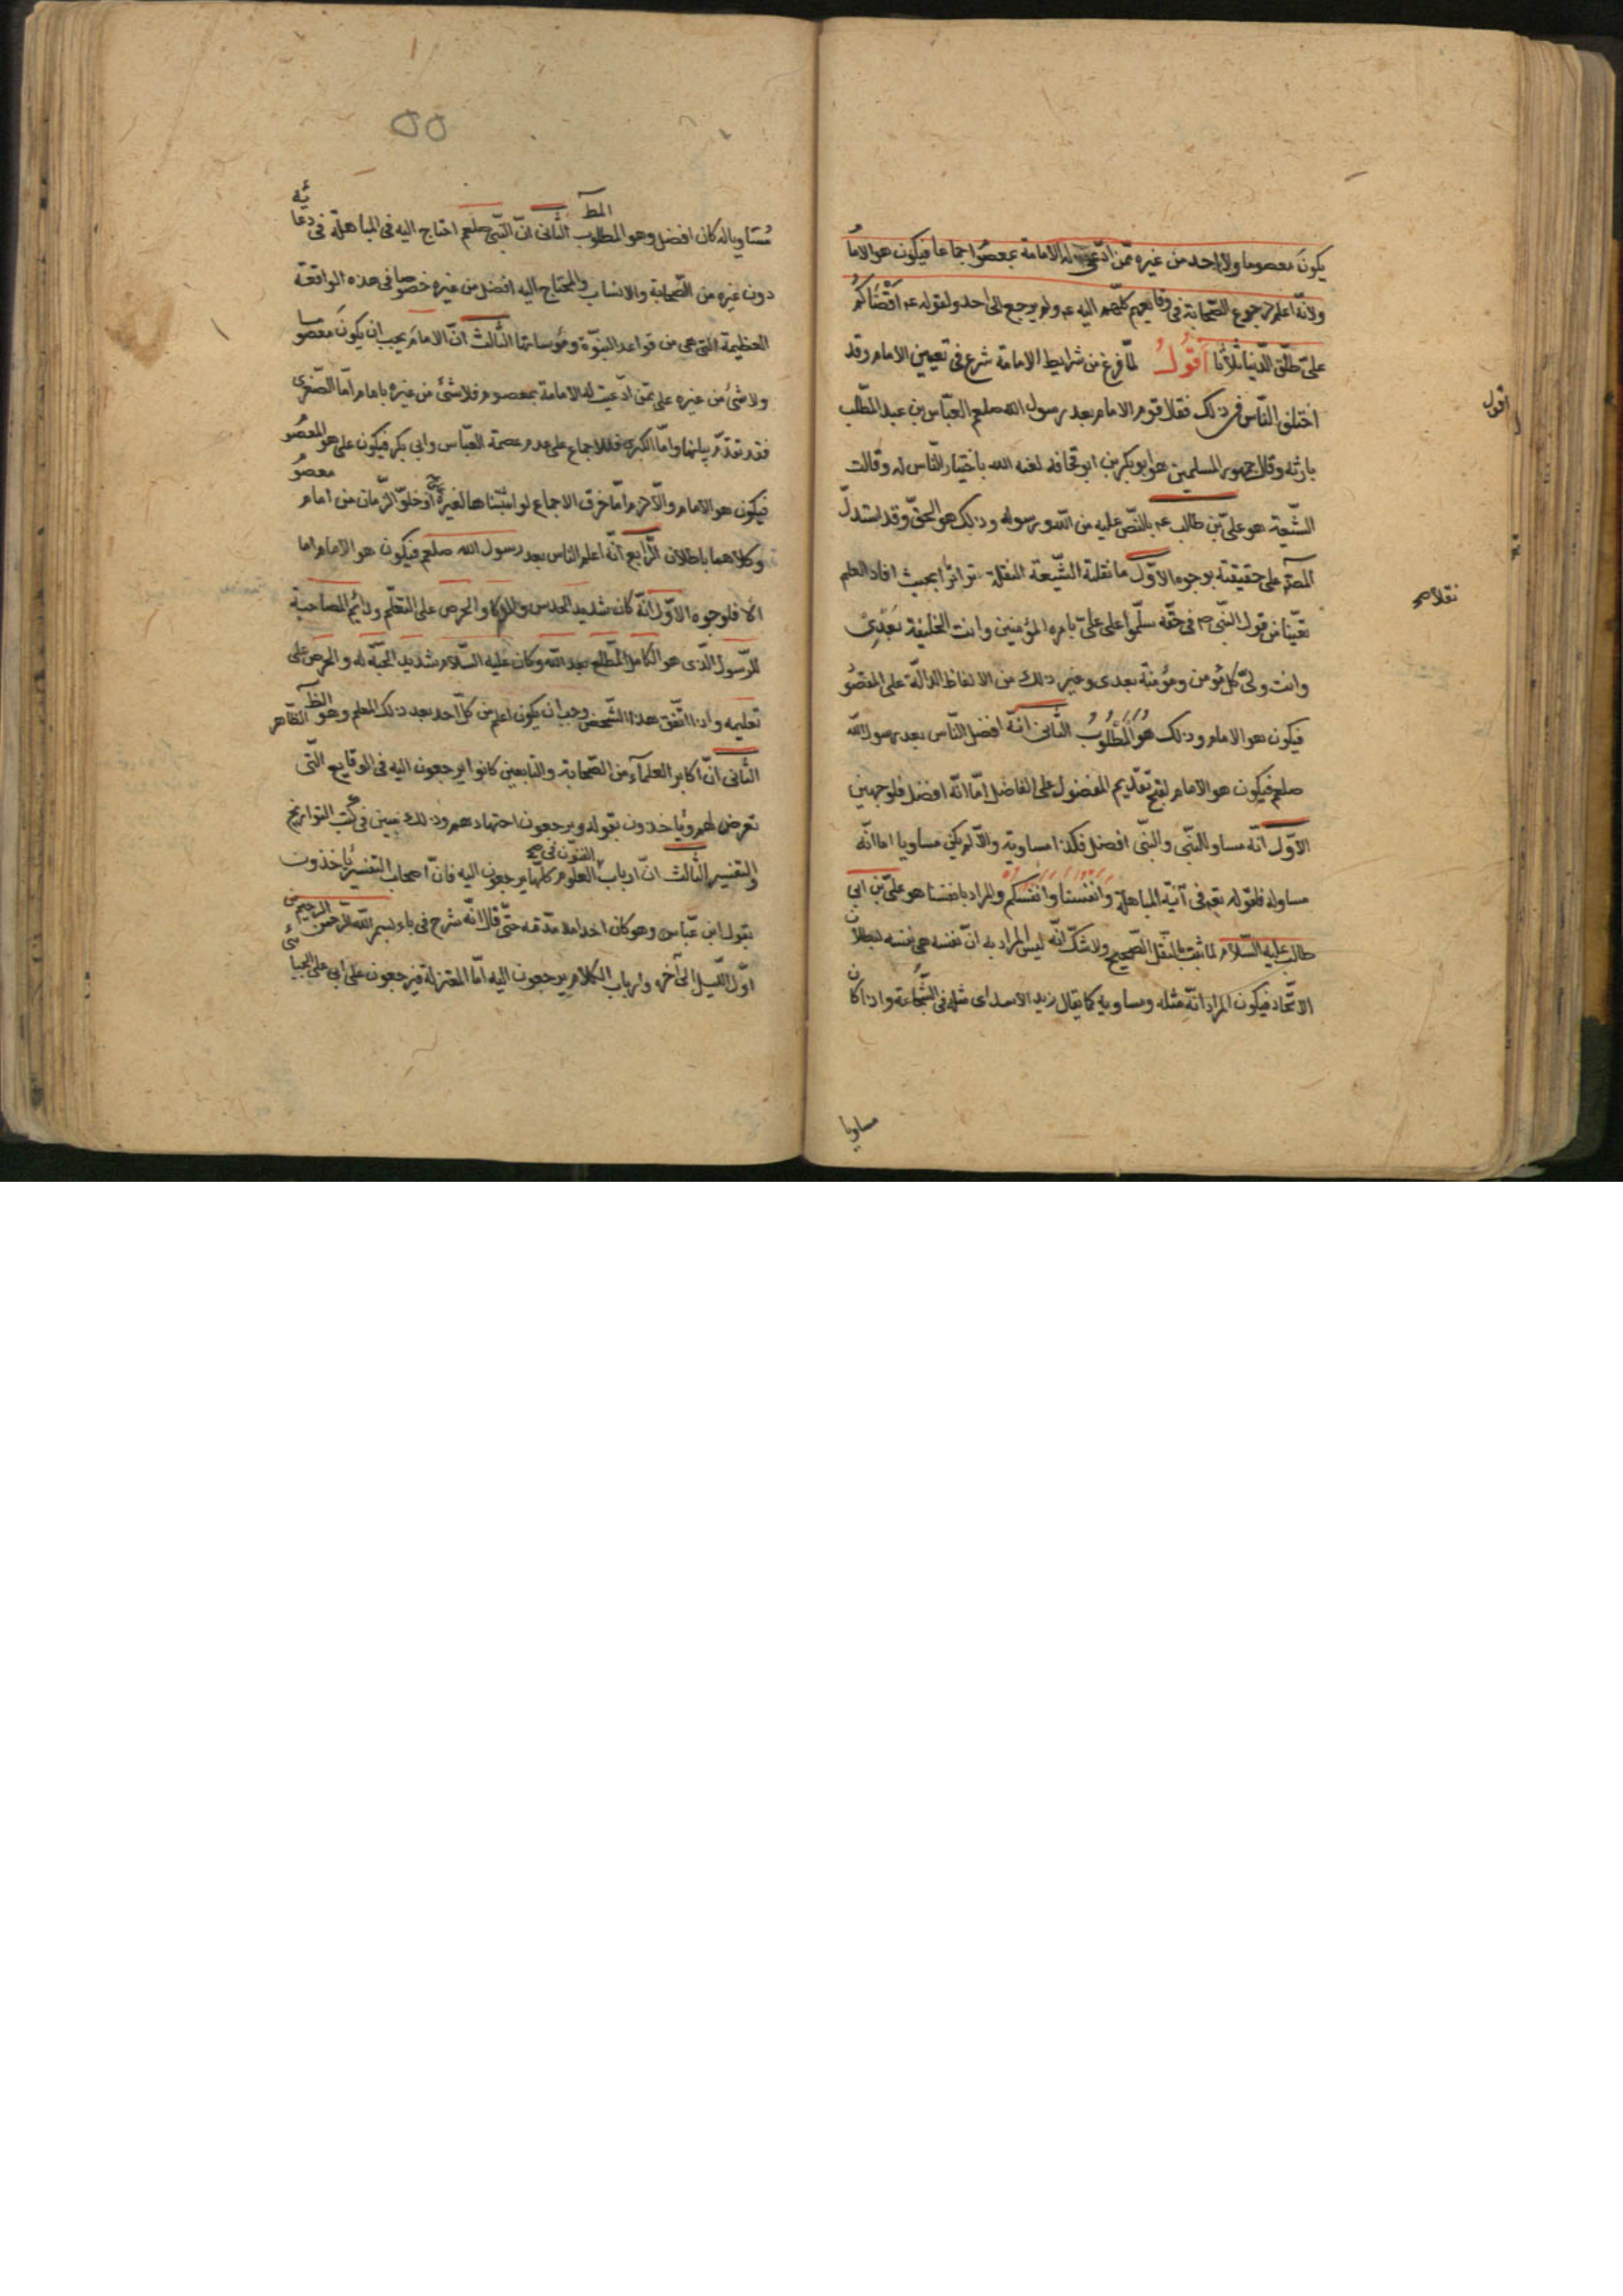 يكون معصوما ولا احد من غيره ممّن ادّعى له الامامة بمعصوم اجماعا فيكون هو الاما
ولانّه اعلم لرجوع الصّحابة فى وقايعهم كلّهم اليه عم ولم يرجع الى احد ولقوله عم اقضاكم
علىّ طلّق الدّنيا ثلاثا اقول لمّا فرغ من شرايط الامامة شرع فى تعيين الامام وقد
اختلف النّاس فى ذلك فقال قوم الامام بعد رسول الله صلعم العبّاس بن عبد المطّلب
بارثه وقال جمهور المسلمين هو ابو بكر بن ابو قحافه لعنه الله باختيار النّاس له وقالت
الشّيعة هو علىّ بن طالب عم بالنّصّ عليه من الله ورسوله وذلك هو الحقّ وقد استدلّ
المصّ على حقيقته بوجوه الاوّل ما نقلته الشّيعة النقلة تواترا بحيث افاد العلم
نقلا صح
يقينا من قول النّبى ص فى حقّه سلّموا على علىّ بامره المؤمنين وانت الخليفة بعدى
وانت ولىّ كلّ مؤمن ومؤمنة بعدى وغير ذلك من الالفاظ الدالّة على المقصو
فيكون هو الامام وذلك هو المطلوب الثّانى انّه افضل النّاس بعد رسول الله
صلعم فيكون هو الامام لقبح تقديم المفضول على الفاضل امّا انّه افضل فلوجهين
الاوّل انّه مساو للنّبى والنّبى افضل فكذا مساويه والّا لم يكن مساويا اما انّه
مساو له فلقوله تع فى آية المباهلة وانفسنا وانفسكم والمراد بانفسنا هو علىّ بن ابى
طالب عليه السّلام لما ثبت بالنقل الصّحيح ولا شكّ انّه ليس المراد به انّ نفسه هى نفسه لبطلان
الاتّحاد فيكون المراد انّه مثله ومساويه كما يقال زيد الاسد اى مثله فى الشّجاعة واذا كان
مساويا
مساويا له كان افضل وهو المطلوب الثّانى انّ النّبى صلعم احتاج اليه فى المباهلة فى دعائه
دون غيره من الصّحابة والانساب والمحتاج اليه افضل من غيره خصوصا فى هذه الواقعة
العظيمة الّتى هى من قواعد النبوّة ومؤسساتها الثّالث انّ الامام يجب ان يكون معصوما
ولا شئ من غيره على ممّن ادّعيت له الامامة بمعصوم فلا شئ من غيره بامام امّا الصّغرى
فقد تقدّم بيانها وامّا الكبرى فللاجماع على عدم عصمة العبّاس وابى بكر فيكون على هو المعصو
فيكون هو الامام والّا لزم امّا خرق الاجماع لو اثبتناها لغيره او خلوّ الزّمان من امام معصو
وكلاهما باطلان الرّابع انّه اعلم الناس بعد رسول الله صلعم فيكون هو الامام اما
الا فلوجوه الاوّل انّه كان شديد الحدس والذكا والحرص على التعلّم ودائم المصاحبة
للرّسول الّذى هو الكامل المطلع بعد الله وكان عليه السّلام شديد المحبّة له والحرص على
تعليمه واذا اتّفق هذا الشّخص وجب ان يكون اعلم من كلّ احد بعد ذلك المعلم وهو الظّاهر
الثّانى انّ اكابر العلمآء من الصّحابة والتابعين كانوا يرجعون اليه فى الوقايع الّتى
تعرض لهم ويأخذون بقوله ويرجعون اجتهادهم وذلك مبين فى كتب التواريخ
والتفسير الثّالث انّ ارباب الفنون فى العلوم كلّها يرجعون اليه فانّ اصحاب التفسير يأخذون
بقول ابن عبّاس وهو كان احد تلامذته حتّى قال انّه شرح فى باء بسم الله الرّحمن الرحيم من
اوّل اللّيل الى آخره وارباب الكلام يرجعون اليه امّا المعتزلة فيرجعون على ابى على الجبائى